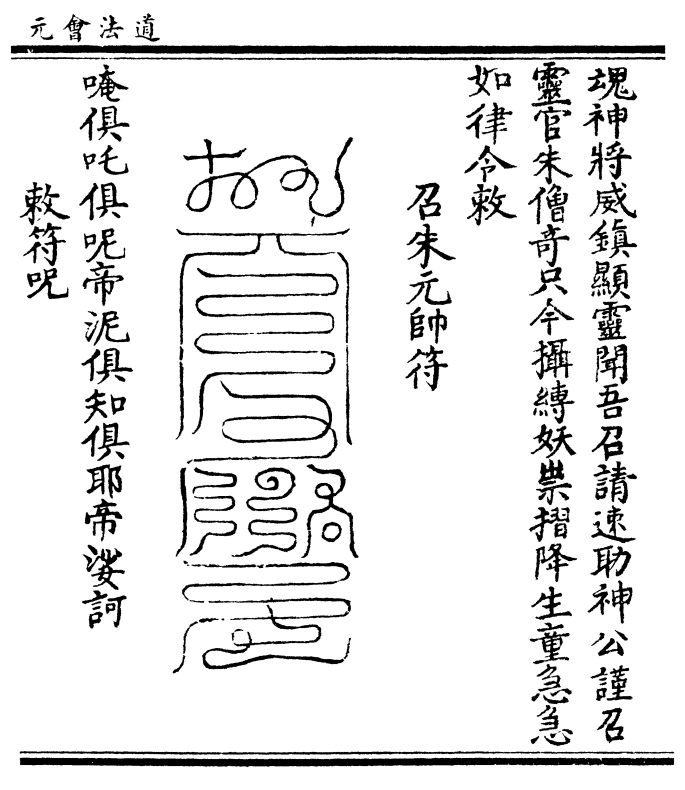 道法會元
魂神將威鎮顯靈聞吾召請速助神公謹召
靈官朱僧奇只今攝縛妖祟摺降生童急急
如律令敕
召朱元帥符
唵俱吒俱呢帝泥俱知俱耶帝娑訶
敕符呪